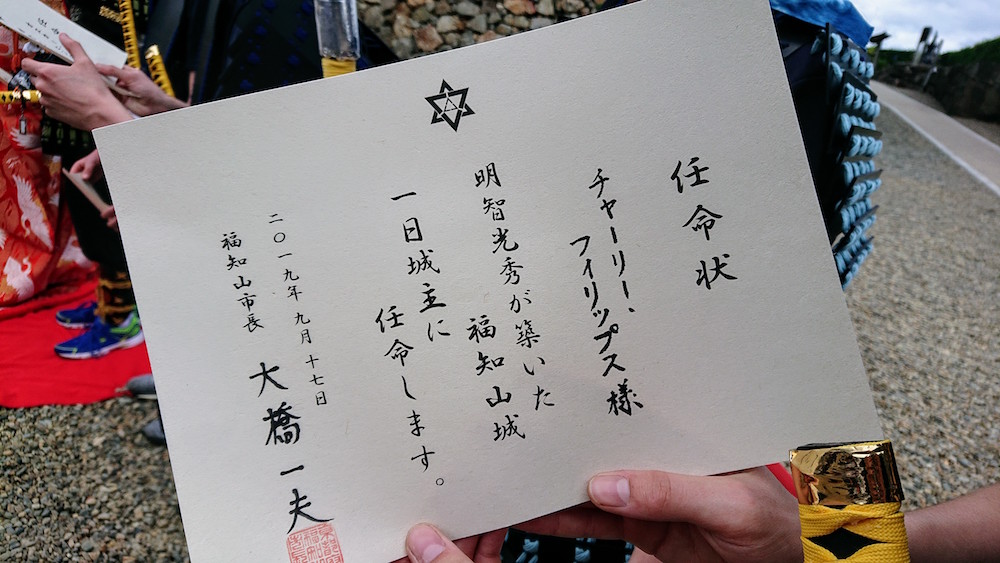 任命状
チャーリー、フィリップス様
明智光秀が築いた
福知山城
一日城主に
任命します。
二〇一九年九月十七日
福知山市長
大橋一夫